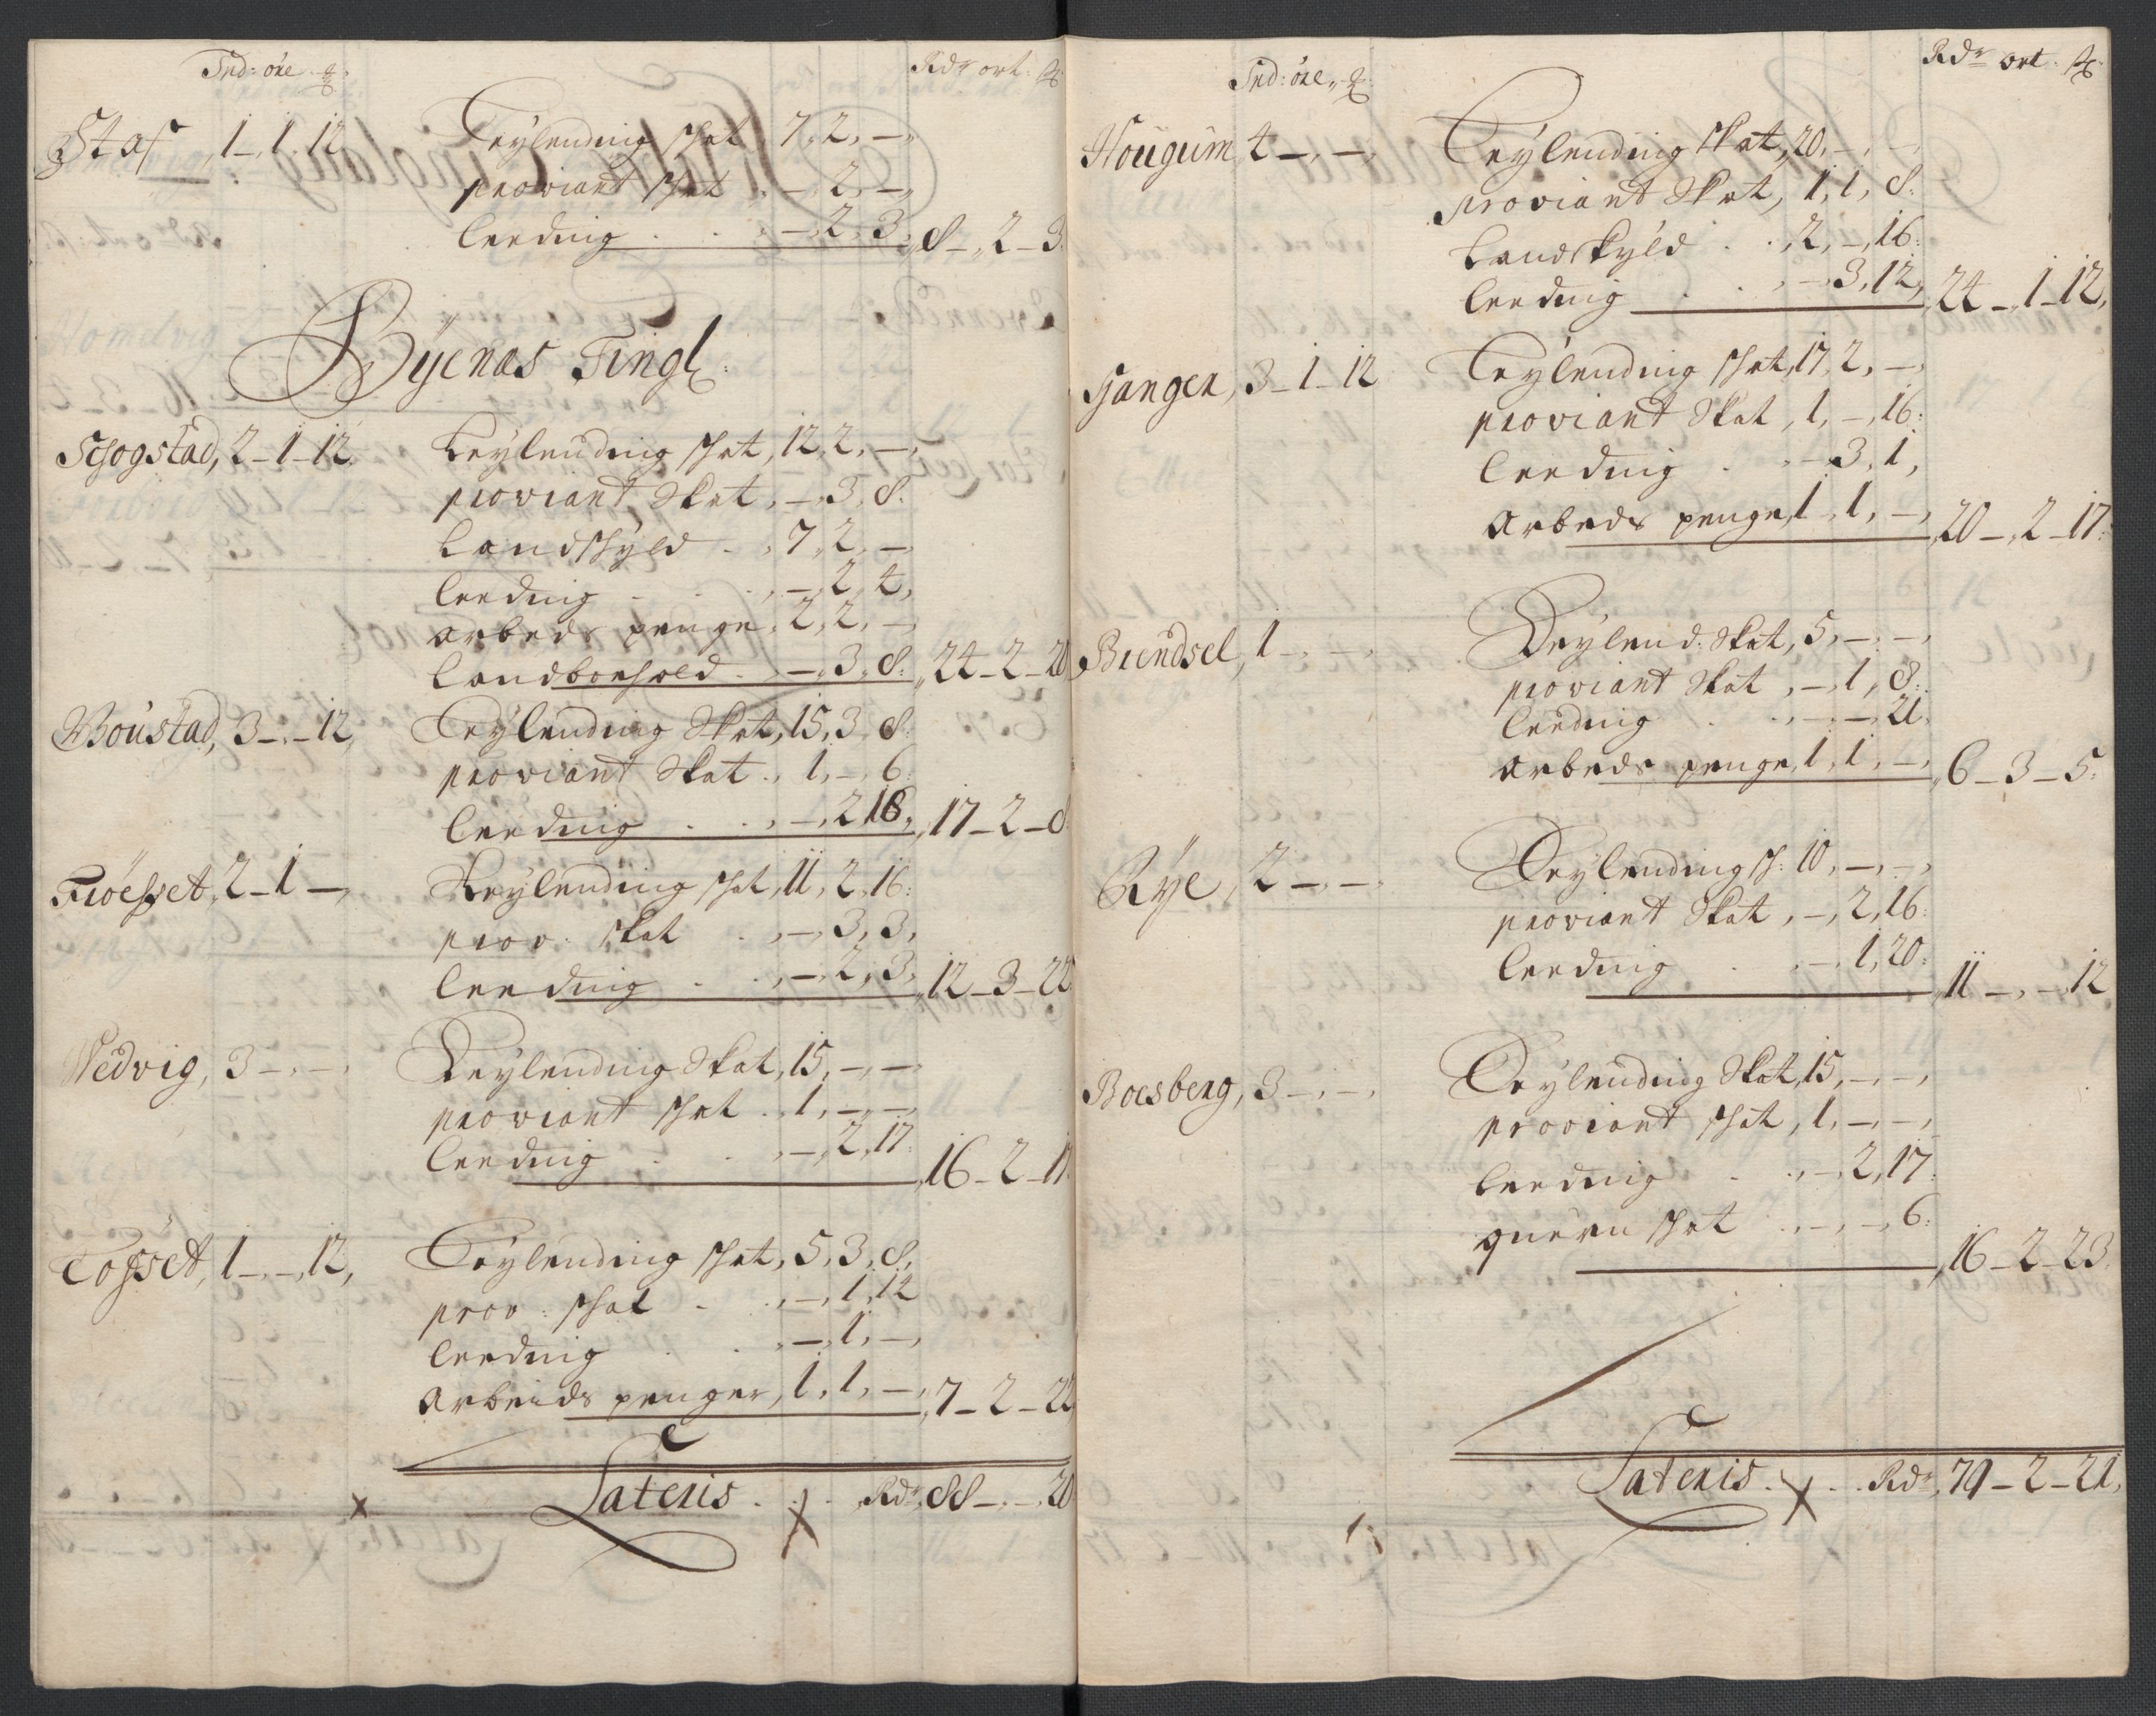 Spd: øre
Rdr ort ß
Staf, 1-1-12 Leylending skat, 7, 2, -
proviant skat - 2, -
Leeding . . - 2, 3, 8-2-3
Byenæs Tingl:
Schogstad, 2-1-12 Leylending skat, 12, 2, -
proviant Skat, -, 3, 8.
Landskyld . 7, 2, -
Leeding . . -, 2, 4,
Arbeds penge, 2, 2, -
Landboehold . -, 3, 8: 24-2-20
Boustad, 3-,-12, Leylending Skat, 15, 3, 8.
proviant Skat., 1, -, 6.
Leeding . . -, 2, 16, 17-2-8
Fiøesset, 2-1-, Leylending skat, 11, 2, 16:
prov. skat . -, 3, 3,
Leeding . . -, 2, 3, 12-3-22
Wedvig, 3-,-, Leylending Skat, 15, -, -
proviant skat . 1, -, -
Leeding . . -, 2, 17. 16-2-17
Tofset, 1-,-,12, Leylending skat, 5, 3, 8,
prov: skat . -, 1, 12
Leeding . . -, 1, -,
Arbeids penger, 1, 1, -, 7-2-22
Lateris . . Rdr, 88-,-20
Spd: øre
Rdr ort ß
Hougum, 4-,-, Leylending Skat, 20, -, -
proviant Skat, 1, 1, 8.
Landskyld . ., 2, -, 16:
Leeding . . -3, 12, 24-,1-12,
Hangen, 3-1-12 Leylending skat, 17, 2, -,
proviant Skat, 1, -, 16:
Leeding . . - 3, 1,
Arbeds penge, 1, 1, -, 20-,2-17:
Biendsel, 1-,-, Leylend. Skat, 5, -, -,
proviant Skat, -, 1, 8:
Leeding . . -, -, 21.
Arbeds penge, 1, 1, -, 6-3-5:
Rye, 2-,-, Leylending S: 10, -, -,
proviant Skat, -, 2, 16:
Leeding . . -, 1, 20: 11-,-,12
Boesberg, 3-,-, Leylending Skat, 15, -, -,
proviant skat, 1, -, -,
Leeding . . -, 2, 17.
quern skat . . -, -, 6: 16-2-23
Lateris . . Rdr, 79-2-21,